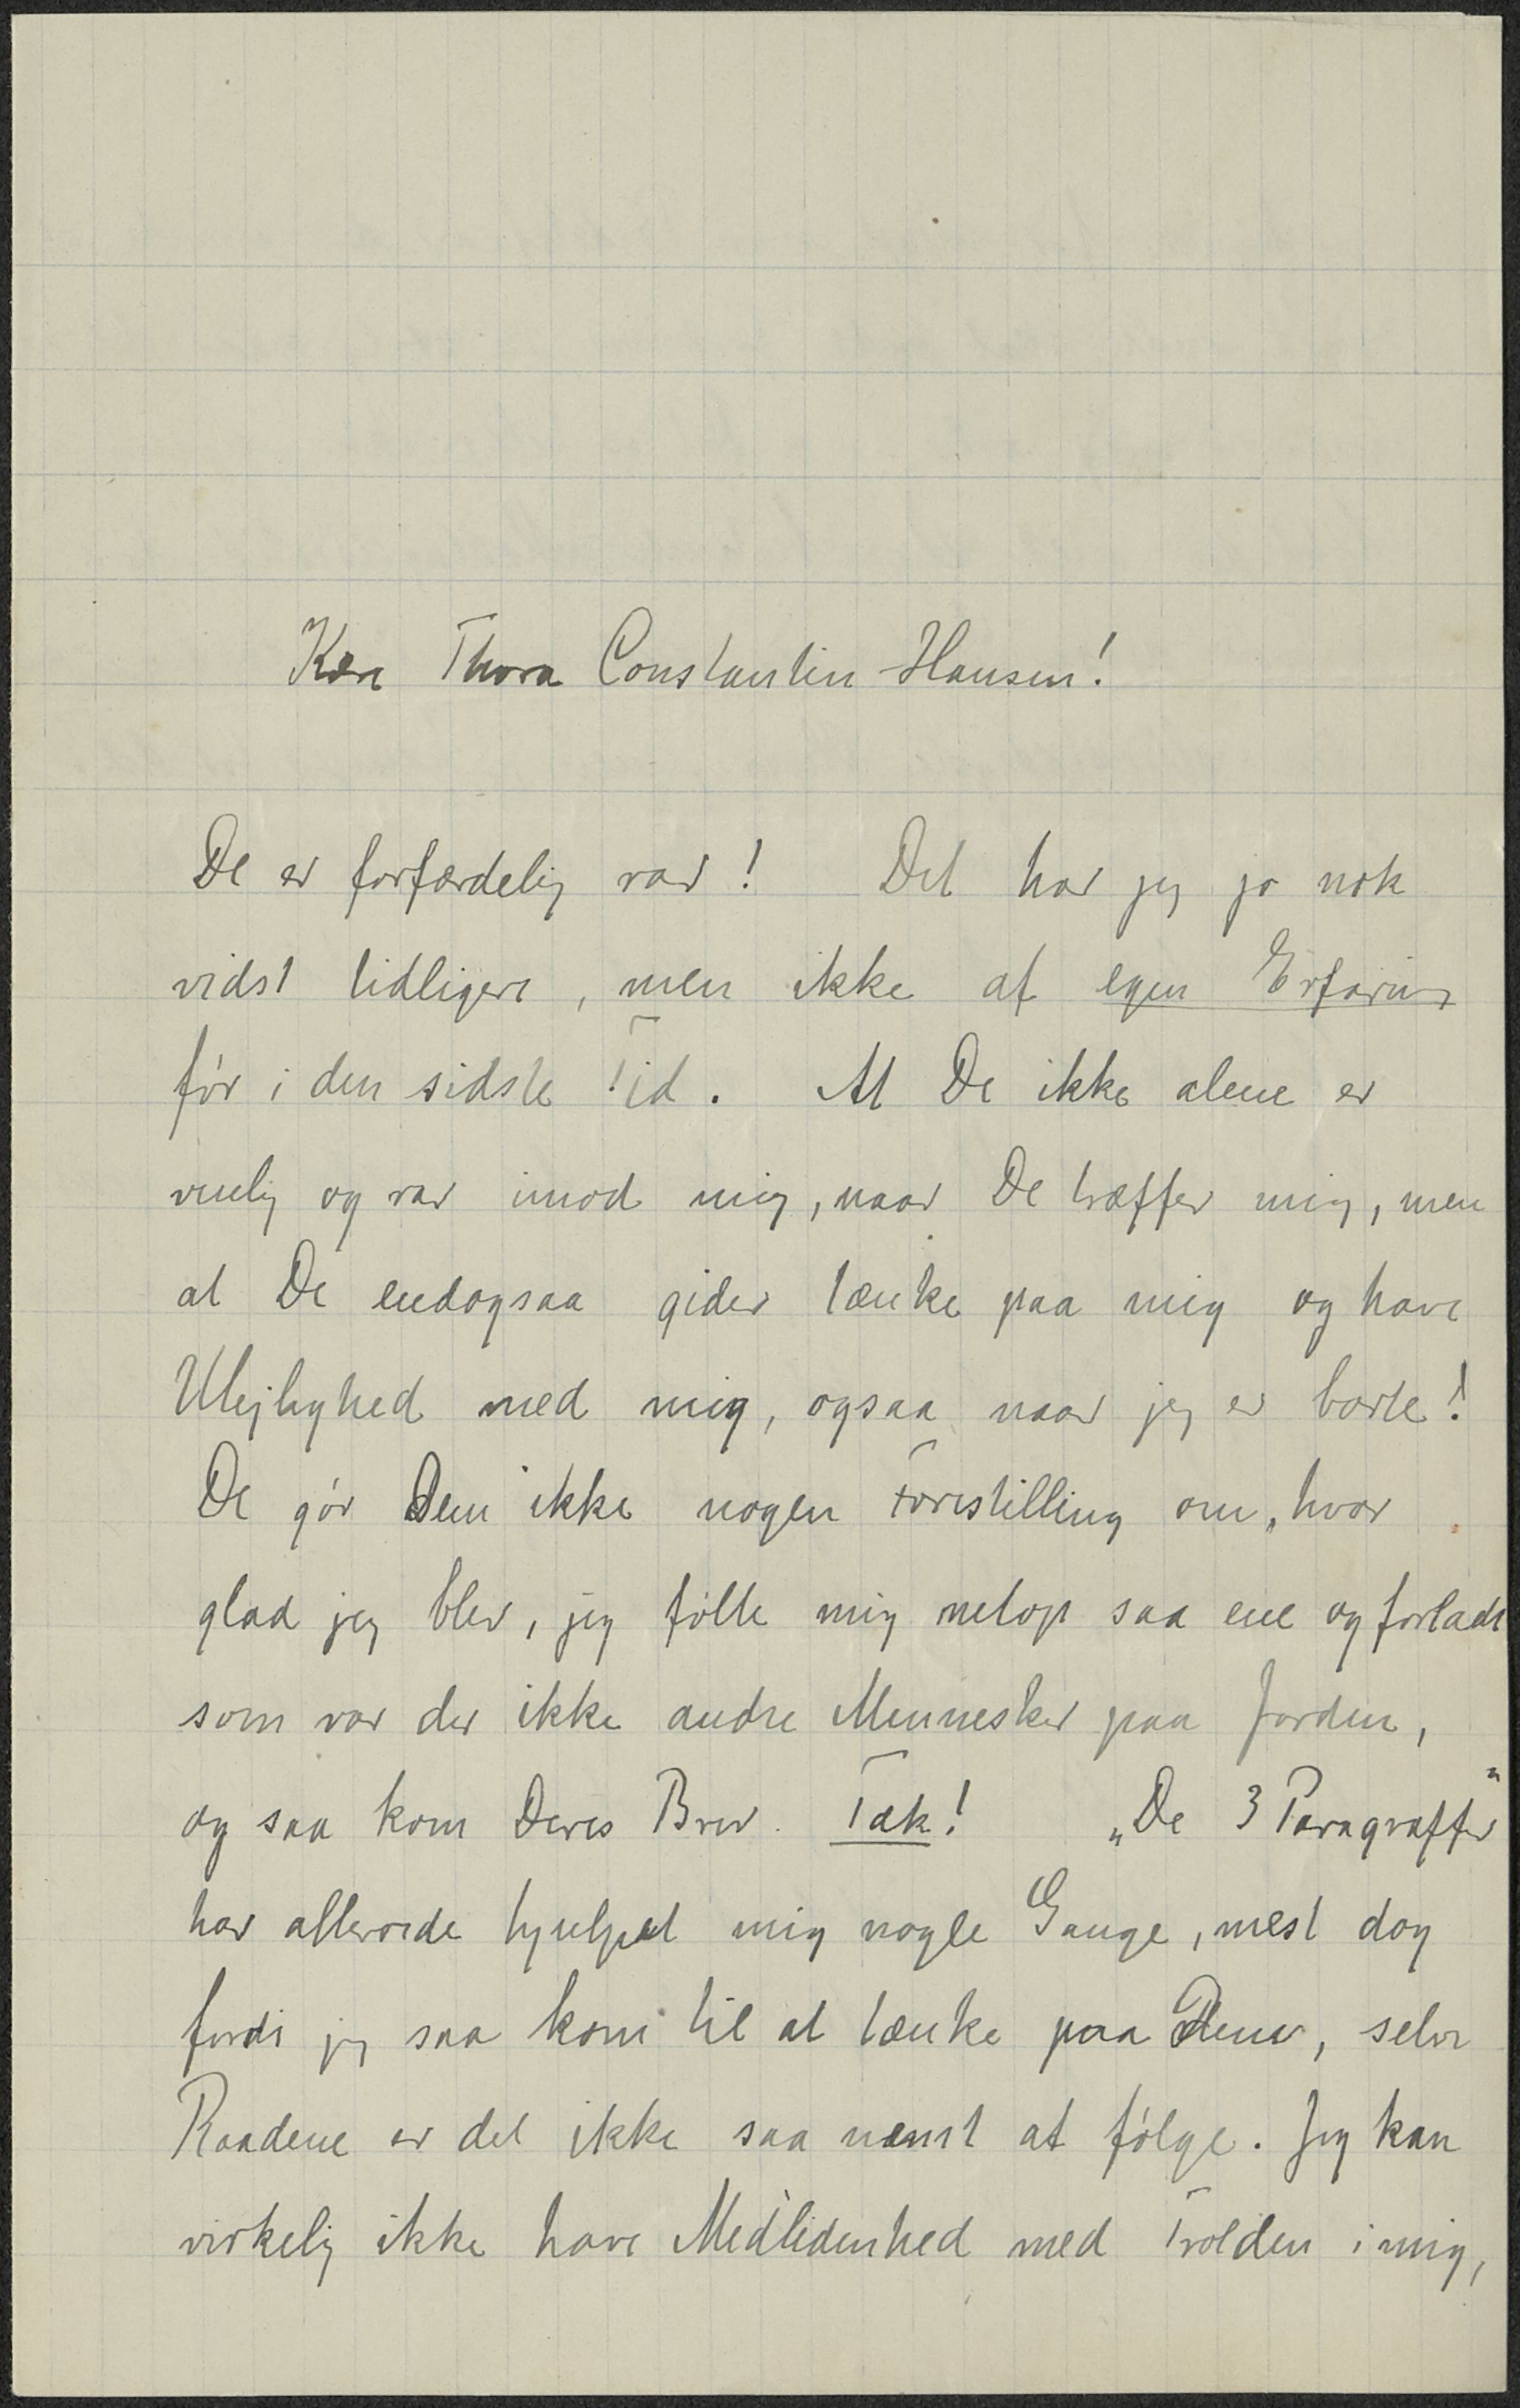 Kære Thora Constantin-Hansen!
De er forfærdelig rar! Det har jeg jo nok
vidst tidligere, men ikke af egen Erfaring
før i den sidste Tid. At De ikke alene er
venlig og rar imod mig, naar De træffer mig, men
at De endogsaa gider tænke paa mig og have
Ulejlighed med mig, ogsaa naar jeg er borte!
De gør Dem ikke nogen Forestilling om, hvor
glad jeg blev, jeg følte mig netop saa ene og forladt
som var der ikke andre Mennesker paa Jorden,
og saa kom Deres Brev. Tak! „De 3 Paragraffer"
har allerede hjulpet mig nogle Gange, mest dog
fordi jeg saa kom til at tænke paa Dem, selve
Raadene er det ikke saa nemt at følge. Jeg kan
virkelig ikke have Medlidenhed med Trolden i mig,